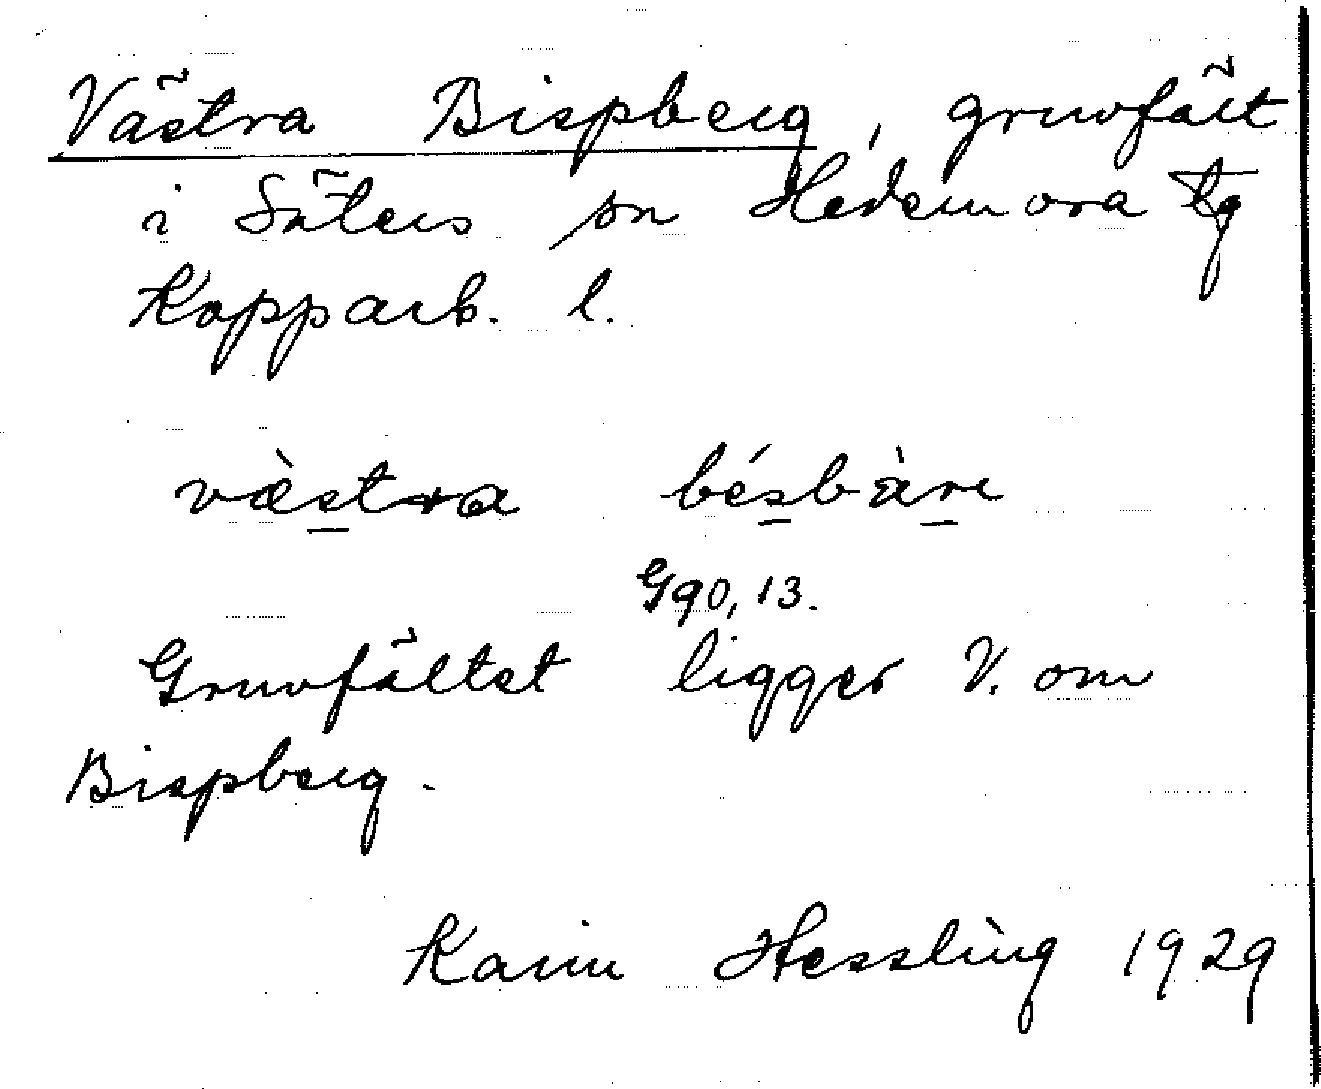 Västra Bispberg, gruvfält
i Säters sn Hedemora tg
Kopparb. l.
væ̀stra bésbàre
G90, 13.
Gruvfältet ligger V. om
Bispberg.
Karin Hessling 1929